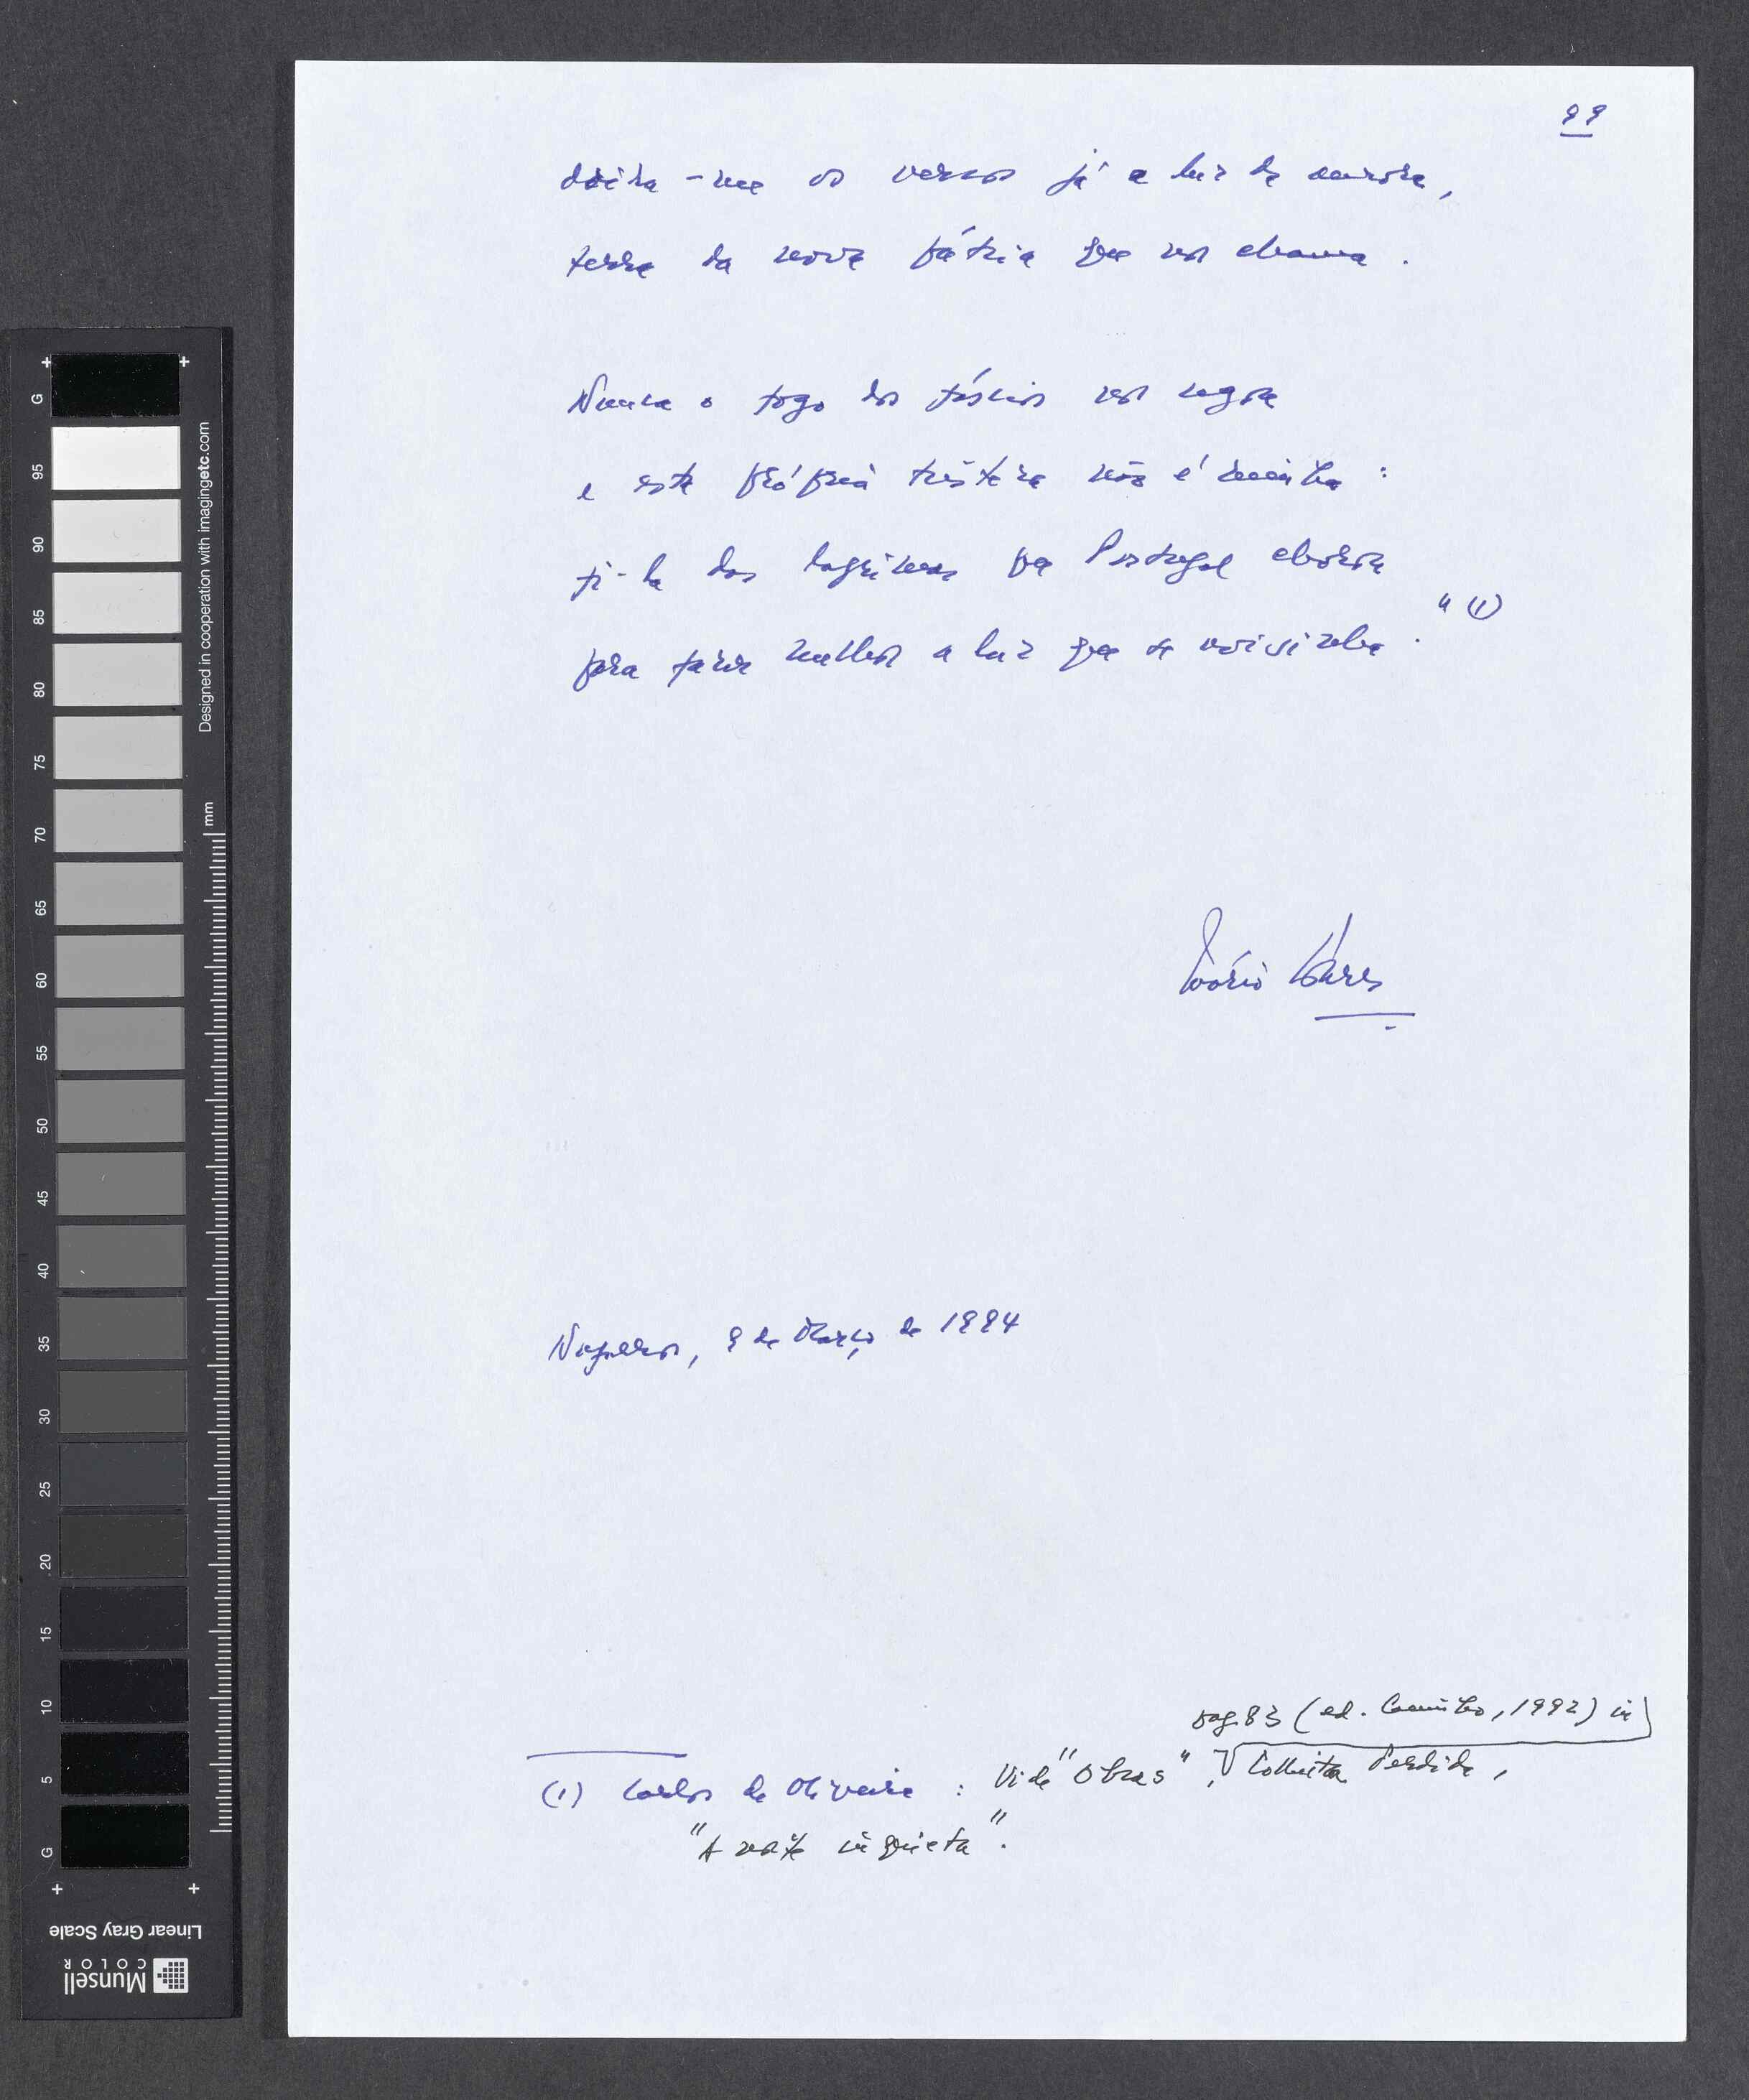 99
doira-me os versos já a luz da aurora,
terra da nova pátria que nos chama.
Nunca o fogo dos fáscios nos cegou
e esta própria tristeza não é minha:
fi-la das lágrimas que Portugal chorou
para fazer melhor a luz que se avizinha." (1)
Mário Soares
Nafarros, 9 de Março de 1994
pag. 83 (ed. Caminho, 1992) in
(1) Carlos de Oliveira: Vide "Obras", Colheita Perdida,
"A noite inquieta".
G
95
90
85
80
75
70
65
60
55
50
45
40
35
30
25
20
15
10
5
G
mm
Designed in cooperation with imagingetc.com
Linear Gray Scale
Munsell
COLOR